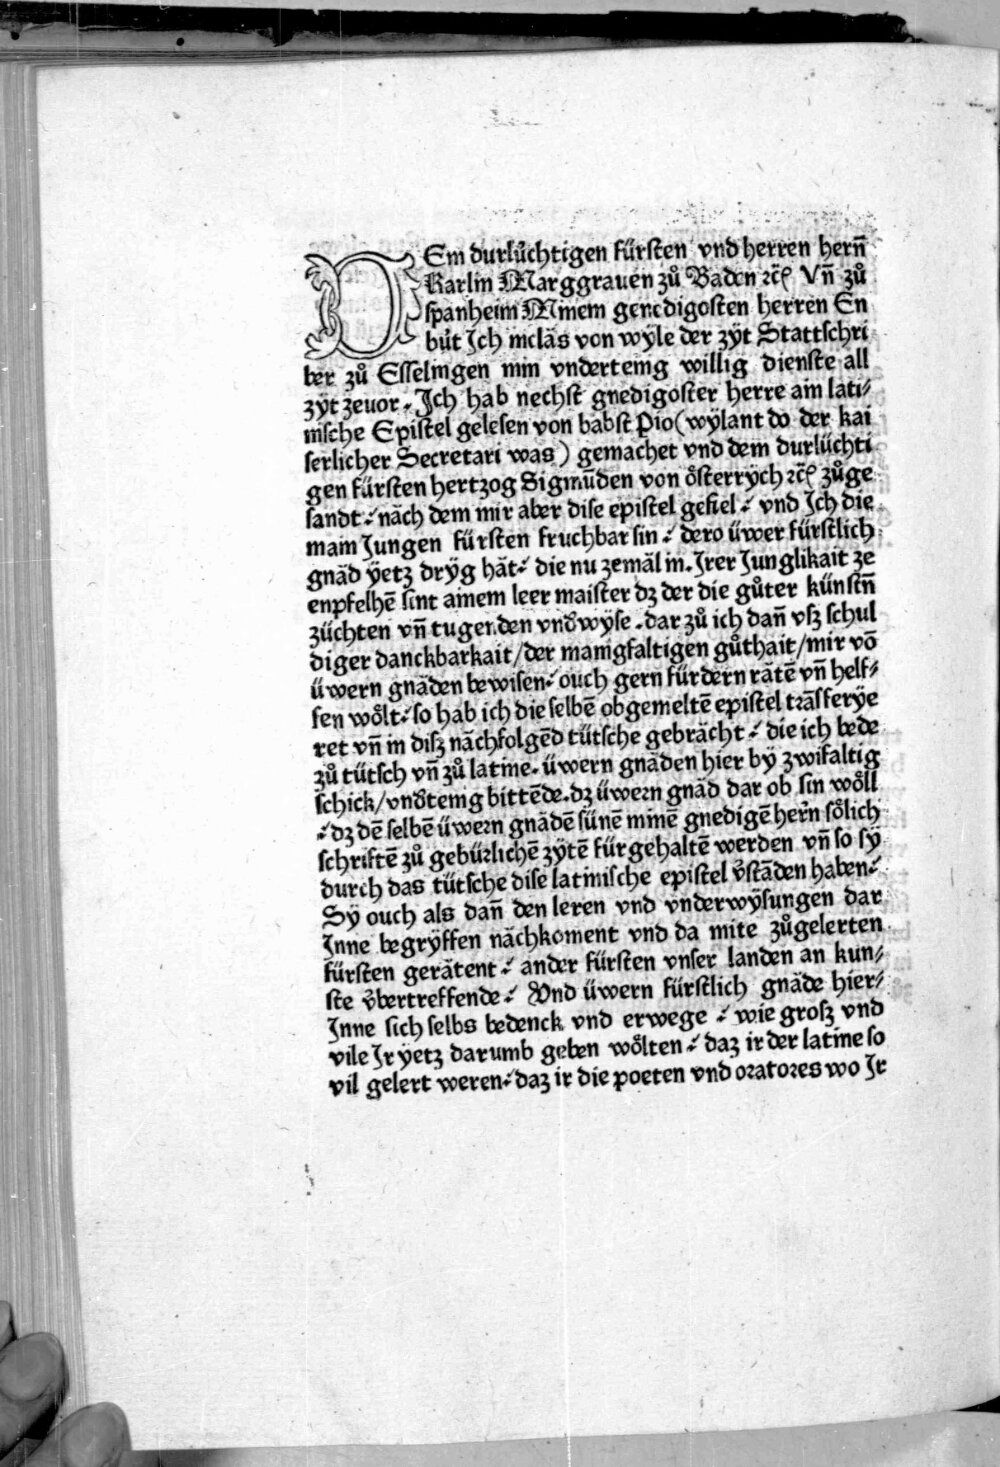 DEm durlüchtigen fürsten vnd herren hern̄
Karlin Marggrauen zů Baden ꝛc̄ Vn̄ zů
spanheim Minem genedigosten herren En
bút Ich niclās von wyle der zÿt Stattschri
ber zů Esselingen min vndertenig willig dienste all
zÿt zeuor. Ich hab nechst gnedigoster herre ain lati⸗
nische Epistel gelesen von babst Pio (wÿlant do der kai
serlicher Secretari was) gemachet vnd dem durlüchti
gen fürsten hertzog Sigmūden von ǒsterrÿch ꝛc̄ zůge
sandt⸝ nāch dem mir aber dise epistel gefiel⸝ vnd Ich die
main Jungen fürsten fruchbar sin⸝ dero üwer fürstlich
gnād ÿetz drÿg hāt⸝ die nu zemāl in. Jrer Junglikait ze
enpfelhē sint ainem leer maister dz der die gůter künstn̄
züchten vn̄ tugenden vnd̛wÿse. dar zů ich dan̄ vsz schul
diger danckbarkait/der manigfaltigen gůthait/mir vō
üwern gnāden bewisen⸝ ouch gern fürdern rātē vn̄ helf⸗
fen wǒlt⸝ so hab ich die selbē obgemeltē epistel trāsferÿe
ret vn̄ in disz nāchfolgēd tütsche gebrācht⸝ die ich bede
zů tütsch vn̄ zů latine. üwern gnāden hier bÿ zwifaltig
schick/vnd̛tenig bittēde. dz üwern gnād dar ob sin wǒll
⸝ dz dē selbē üwern gnādē sünē minē gnedigē hern̄ sǒlich
schriftē zů gebürlichē zÿtē fürgehaltē werden vn̄ so sÿ
durch das tütsche dise latinische epistel v̛stāden haben⸝
Sÿ ouch als dan̄ den leren vnd vnderwÿsungen dar
Jnne begrÿffen nāchkoment vnd da mite zůgelerten
fürsten gerātent⸝ ander fürsten vnser landen an kun⸗
ste v̛bertreffende⸝ Vnd üwern fürstlich gnāde hier⸗
Jnne sich selbs bedenck vnd erwege⸝ wie grosz vnd
vile Jr ÿetz darumb geben wǒlten⸝ daz ir der latine so
vil gelert weren⸝ daz ir die poeten vnd oratores wo Jr